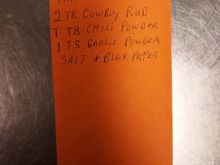 2 TB COWBOY RUB
1 TB CHILI POWDER
1 TS GARLIC POWDER
SALT + BLACK PEPPER